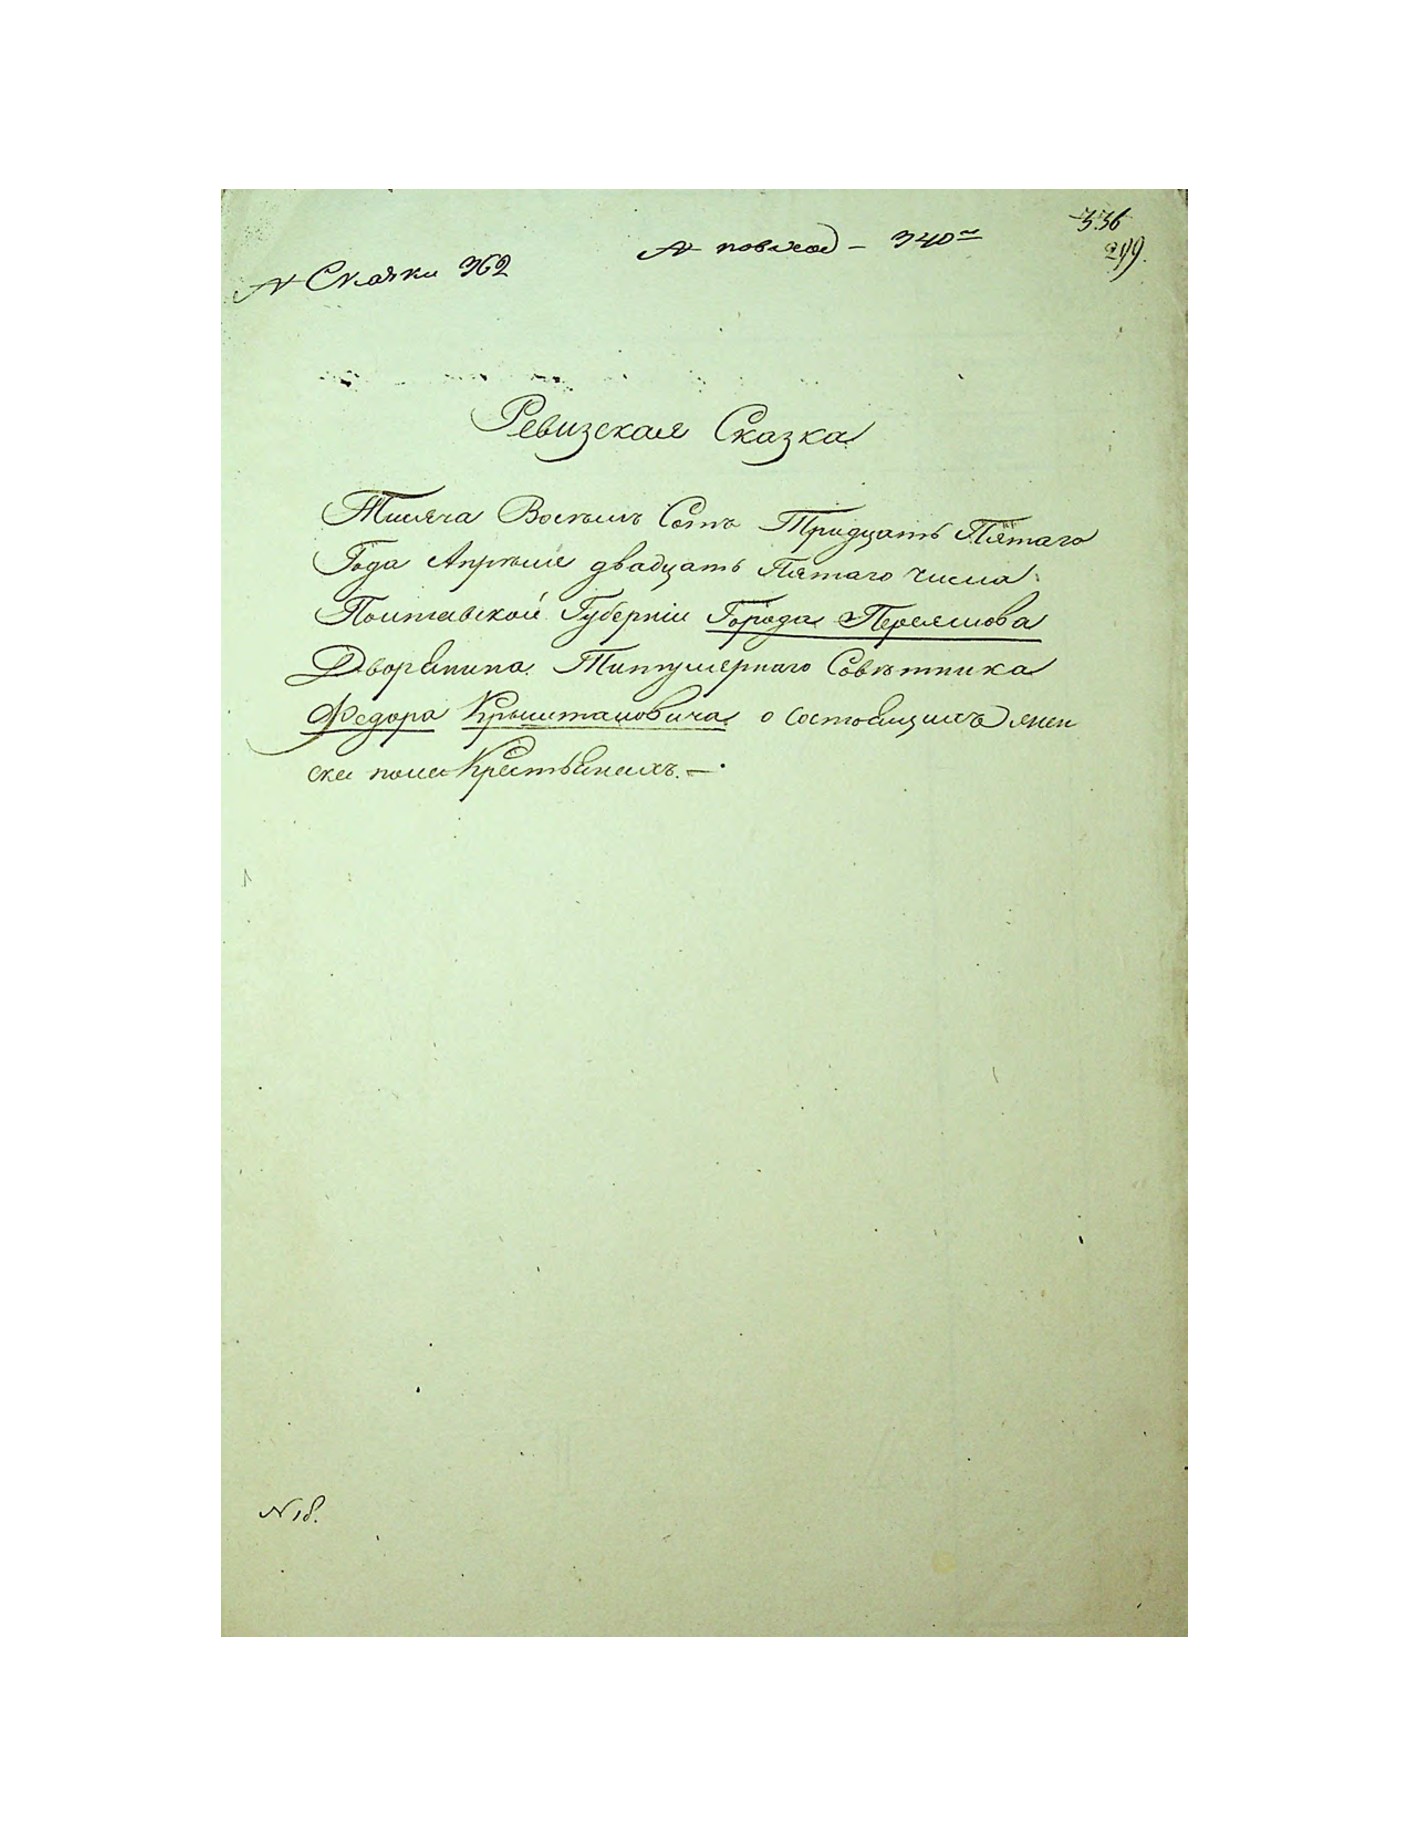 336
299.
№ Сказки 362
№ повход – 340й
Ревизская Сказка
Тысяча Восемь Сотъ Тридцать Пятаго
Года Апрѣля двадцать Пятаго числа
Полтавской Губерніи Города Переяслова
Дворянина Титулярнаго Совѣтника
Федора Крыштановича о состоящихъ женс
ка пола Крестьянахъ. –
N 18.